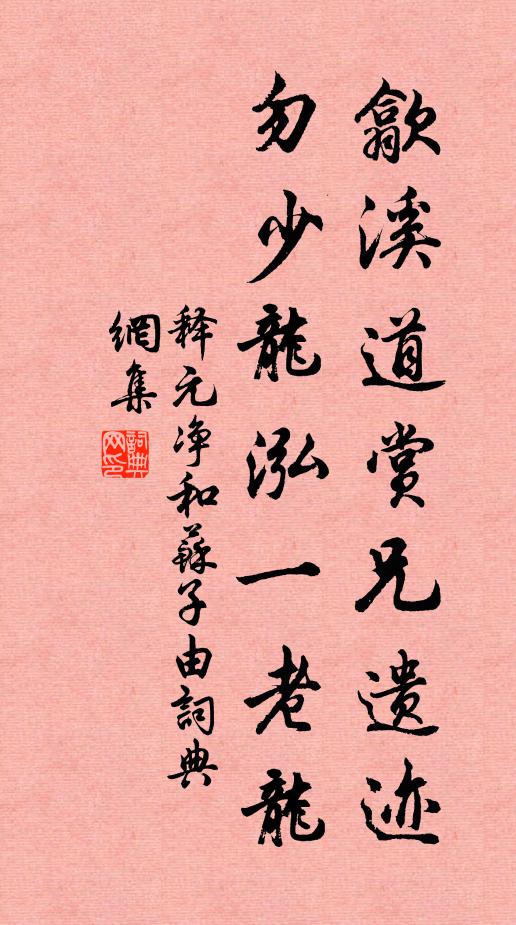 歙溪道赏兄遗迹
勿少龍泓一老龍
释元净和蘇子由詞典
網集
詞典
网印